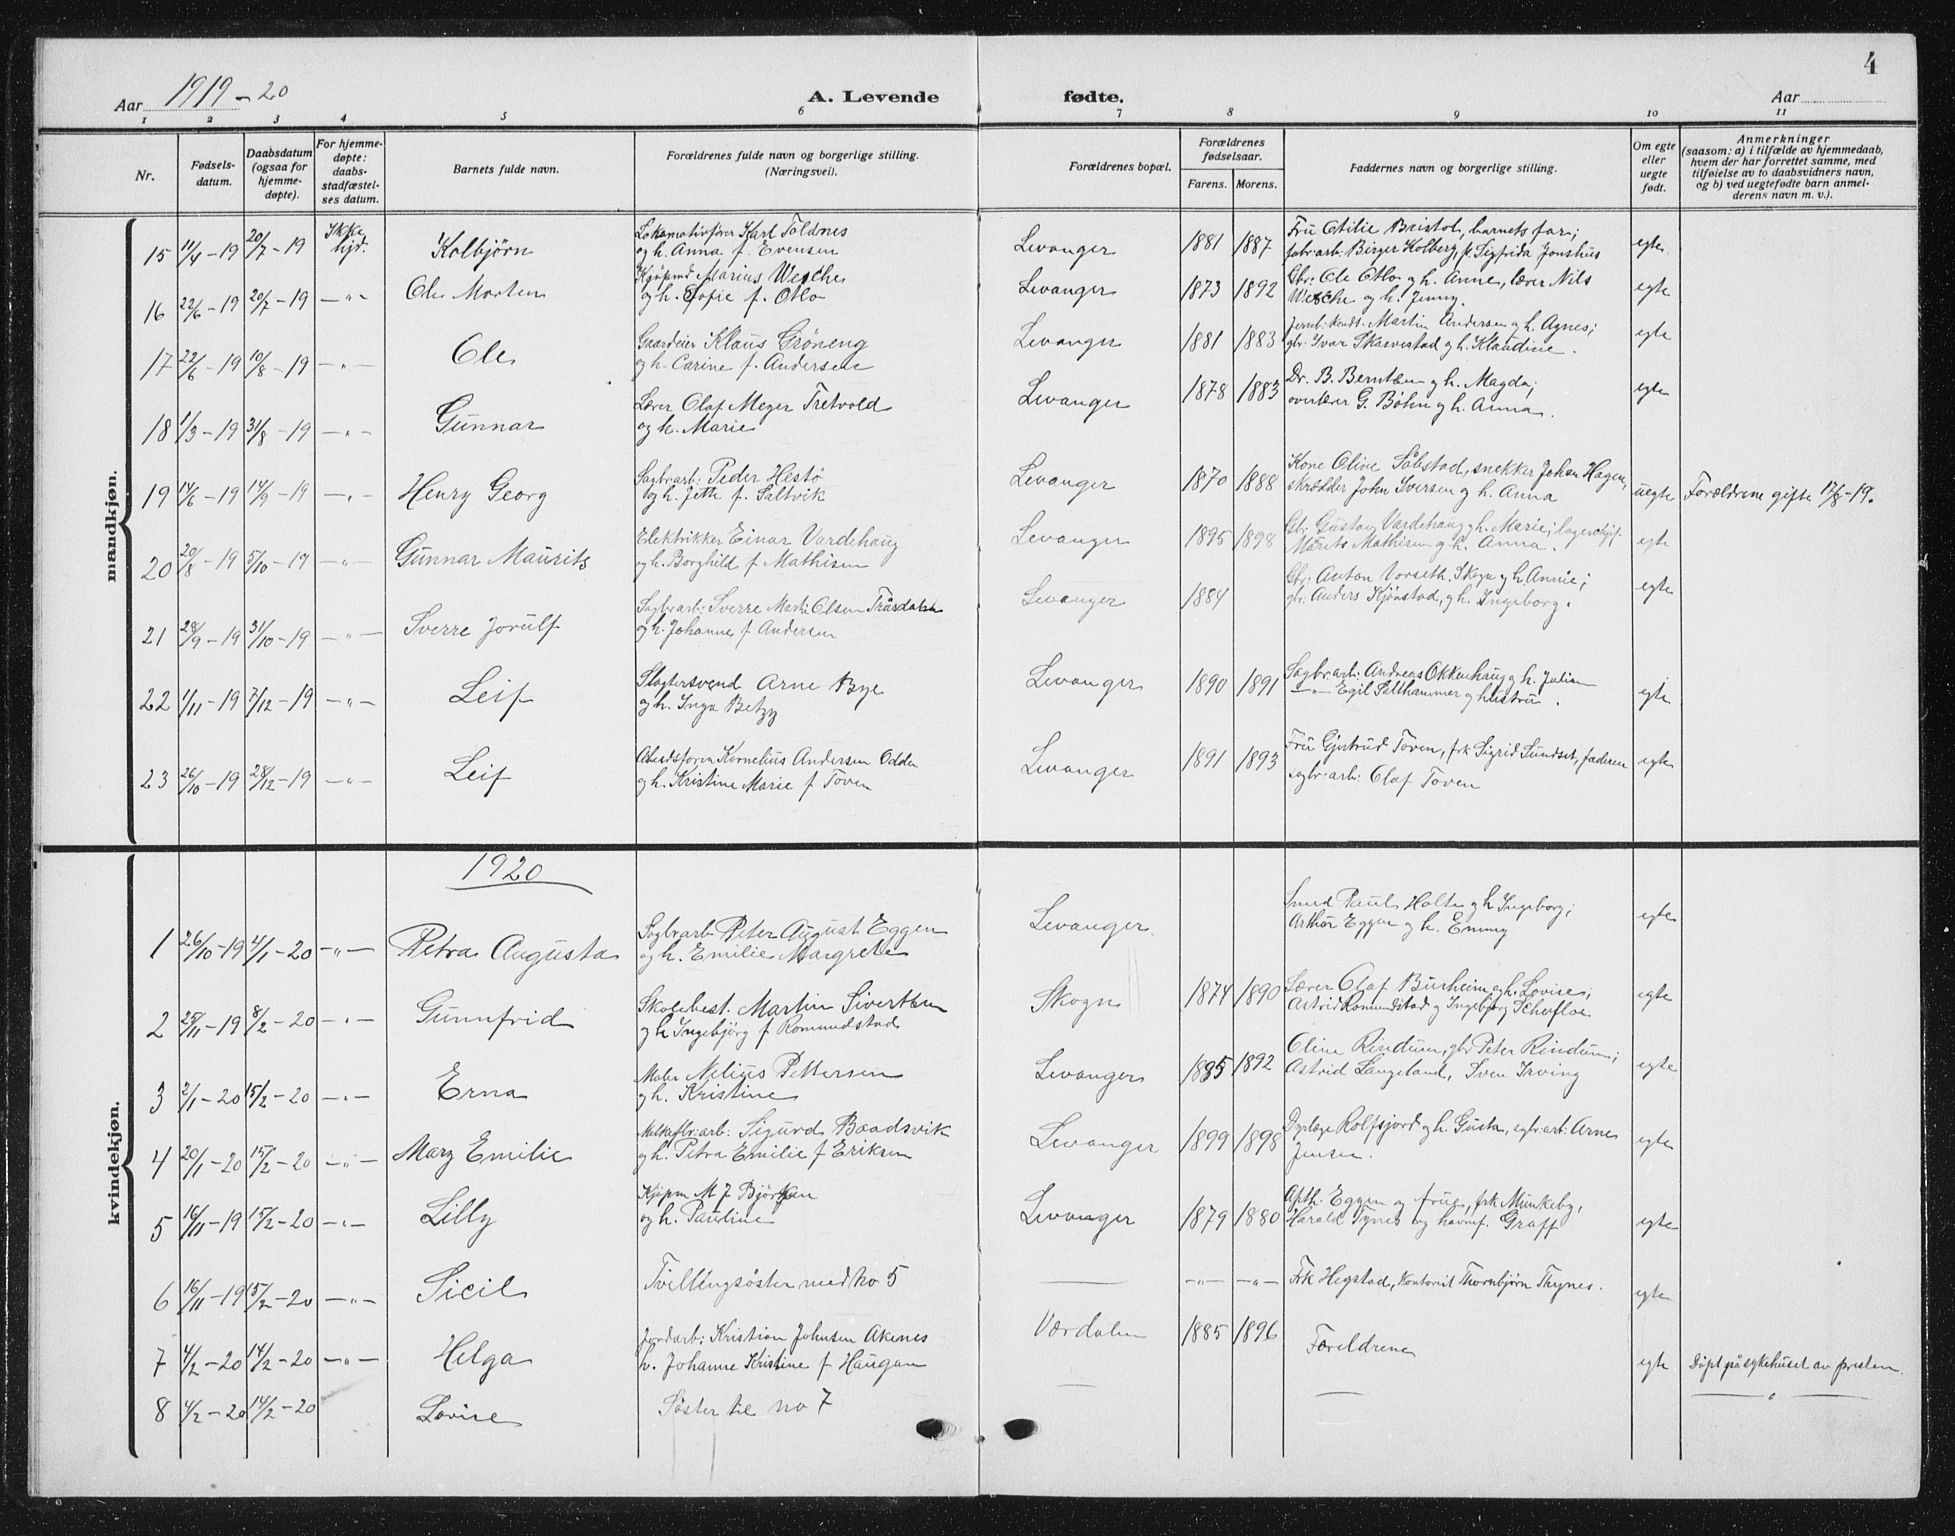 4
Aar 1919-20 A. Levende fødte. Aar
1 2 3 4 5 6 7 8 9 10 11
Nr.
Fødsels-
datum.
Daabsdatum
(ogsaa for
hjemme-
døpte).
For hjemme-
døpte:
daabs-
stadfæstel-
ses datum.
Barnets fulde navn.
Forældrenes fulde navn og borgerlige stilling.
(Næringsvei).
Forældrenes bopæl.
Forældrenes
fødselsaar.
Farens. Morens.
Faddernes navn og borgerlige stilling.
Om egte
eller
uegte
født.
Anmerkninger
(saasom: a) i tilfælde av hjemmedaab,
hvem der har forrettet samme, med
tilføielse av to daabsvidners navn,
og b) ved uegtefødte barn anmel-
derens navn m. v.).
mandkjøn.
15 11/4-19 20/7-19 Ikke hjd. Kolbjörn Levanger 1881 1887 egte
Lokomotivfører Karl Foldnes
og h. Anna f. Evensen
Fru Otilie Bristol, barnets far;
fabr.arb. Birger Kolberg, p. Sigfrida Jonshus
16 22/6-19 20/7-19 -"- Ole Morten Levanger 1873 1892 egte
Kjøpmd Marius Wesche
og h. Sofie f. Otlo
Gbr: Ole Otlo og h. Anne, lærer Nils
Wesche og h. Jenny.
17 22/6-19 10/8-19 -"- Ole Levanger 1881 1883 egte
Gaardeier Klaus Gröneng
og h. Carine f. Andersen
Martin Andersen og h. Agnes;
gbr. Ivar Skarvestad og h. Klaudine.
18 1/3-19 31/8-19 -"- Gunnar Levanger 1878 1883 egte
Lærer Olaf Meyer Tretvold
og h. Marie
Dr. B. Berntsen og h. Magda;
overlærer G. Böhn og h. Anna.
19 14/6-19 14/9-19 -"- Henry Georg Levanger 1870 1888 uegte Forældrene gifte 17/8-19.
Sagbr.arb: Peder Hestö
og h. Jette f. Saltvik
Kone Oline Söbstad, snekker Johan Hagen,
skrædder John Iversen og h. Anna
20 20/8-19 5/10-19 -"- Gunnar Maurits Levanger 1895 1898 egte
Elektrikker Einar Vardehaug
og h. Borghild f. Mathisen
Gb: Gustav Vardehaug og h. Marie;
Maurits Mathisen og h. Anna.
21 28/9-19 31/10-19 -"- Sverre Jorulf Levanger 1884 egte
Sagbr.arb: Sverre Mark. Olsen Traasdahl
og h. Johanne f. Andersen
Gbr. Anton Vorseth, Skogn og h. Annie;
gbr: Anders Kjönstad, og h. Ingeborg.
22 1/11-19 7/12-19 -"- Leif Levanger 1890 1891 egte
Slagtersvend Arne Bye
og h. Inga Betzy
Sagbr.arb: Andreas Okkenhaug og h. Julian
-"- Egil Salthammer og hustru.
23 26/10-19 28/12-19 -"- Leif Levanger 1891 1893 egte
Arbeidsform. Kornelius Andersen Odden
og h. Kristine Marie f. Toven
Fru Gjertrud Toven, frk Sigrid Sundset, faderen
sagbr.arb: Olaf Toven
1920
kvindekjøn.
1 26/10-19 4/1-20 -"- Petra Augusta Levanger egte
Sagbr.arb. Peter August Eggen
og h. Emilie Margrete
Smed Paul Holte og h Ingeborg;
Arthur Eggen og h. Emmy
2 25/11-19 8/2-20 -"- Gunnfrid Skogn 1874 1890 egte
Skolebest. Martin Sivertsen
og h Ingebjörg f Romundstad
Lærer Olaf Burheim og h. Lovise;
Astrid Romundstad og Ingebjörg Schefloe
3 2/1-20 15/2-20 -"- Erna Levanger 1885 1892 egte
Maler Nelius Pettersen
og h. Kristine
Oline Rindum, gbr Peter Rindum;
Astrid Langeland, Sven Irving
4 20/1-20 15/2-20 -"- Mary Emilie Levanger 1899 1898 egte
Melkefbr.arb: Sigurd Baadsvik
og h. Petra Emilie f Eriksen
Dyrlæge Rolfsjord og h. Gusta, sgbr.arb: Arne
Jensen.
5 16/11-19 15/2-20 -"- Lilly Levanger 1879 1880 egte
Kjöpm M J Björken
og h. Pauline
Apth. Eggen og frue, frk Munkeby,
Harald Tynes og havnef. Graff
6 16/11-19 15/2-20 -"- Sicil Tvillingsöster med no 5 -"- -"- Frk Hegstad, Kontorist Thornbjörn Thynes. egte
7 4/2-20 14/2-20 -"- Helga Værdalen 1885 1896 Foreldrene egte Döpt på sykehuset av presten
Jordarb: Kristian Johnsen Akenes
h. Johanne Kristine f Haugan
8 4/2-20 14/2-20 Lovise Söster til no 7 -"-